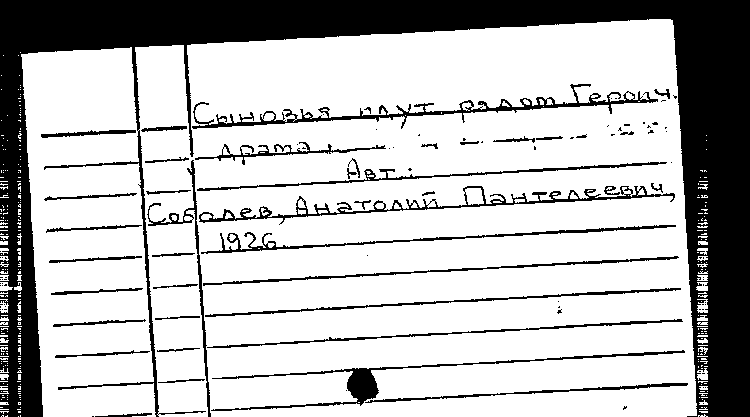 Сыновья идут рядом. Героич.
драма.
Авт.:
Соболев, Анатолий Пантелеевич,
1926.